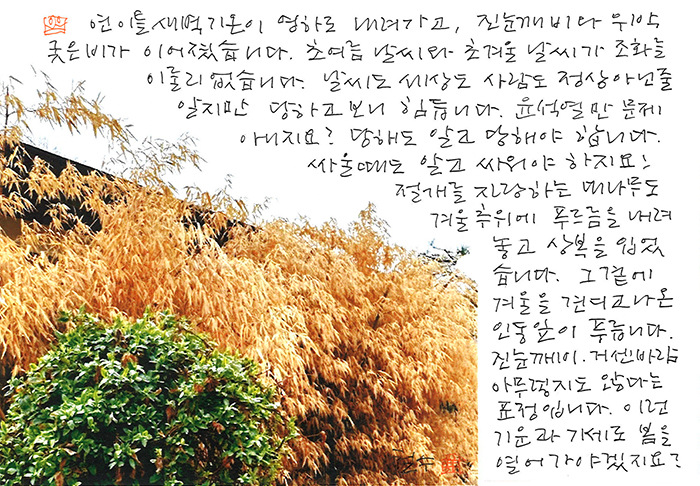 연이틀 새벽기온이 영하로 내려가고, 진눈깨비와 우박
궂은비가 이어졌습니다. 초여름 날씨와 초겨울 날씨가 조화를
이룰리 없습니다. 날씨도 세상도 사람도 정상 아닌줄
알지만 당하고 보니 힘듭니다. 윤석열만 문제
아니지요? 당해도 알고 당해야 합니다.
싸울때도 알고 싸워야 하지요!
절개를 자랑하는 대나무도
겨울 추위에 푸르름을 내려
놓고 상복을 입었
습니다. 그 곁에
겨울을 견디고 나온
인동잎이 푸릅니다.
진눈깨비, 거센바람
아무렇지도 않다는
표정입니다. 이런
기운과 기세로 봄을
열어가야겠지요?
철수